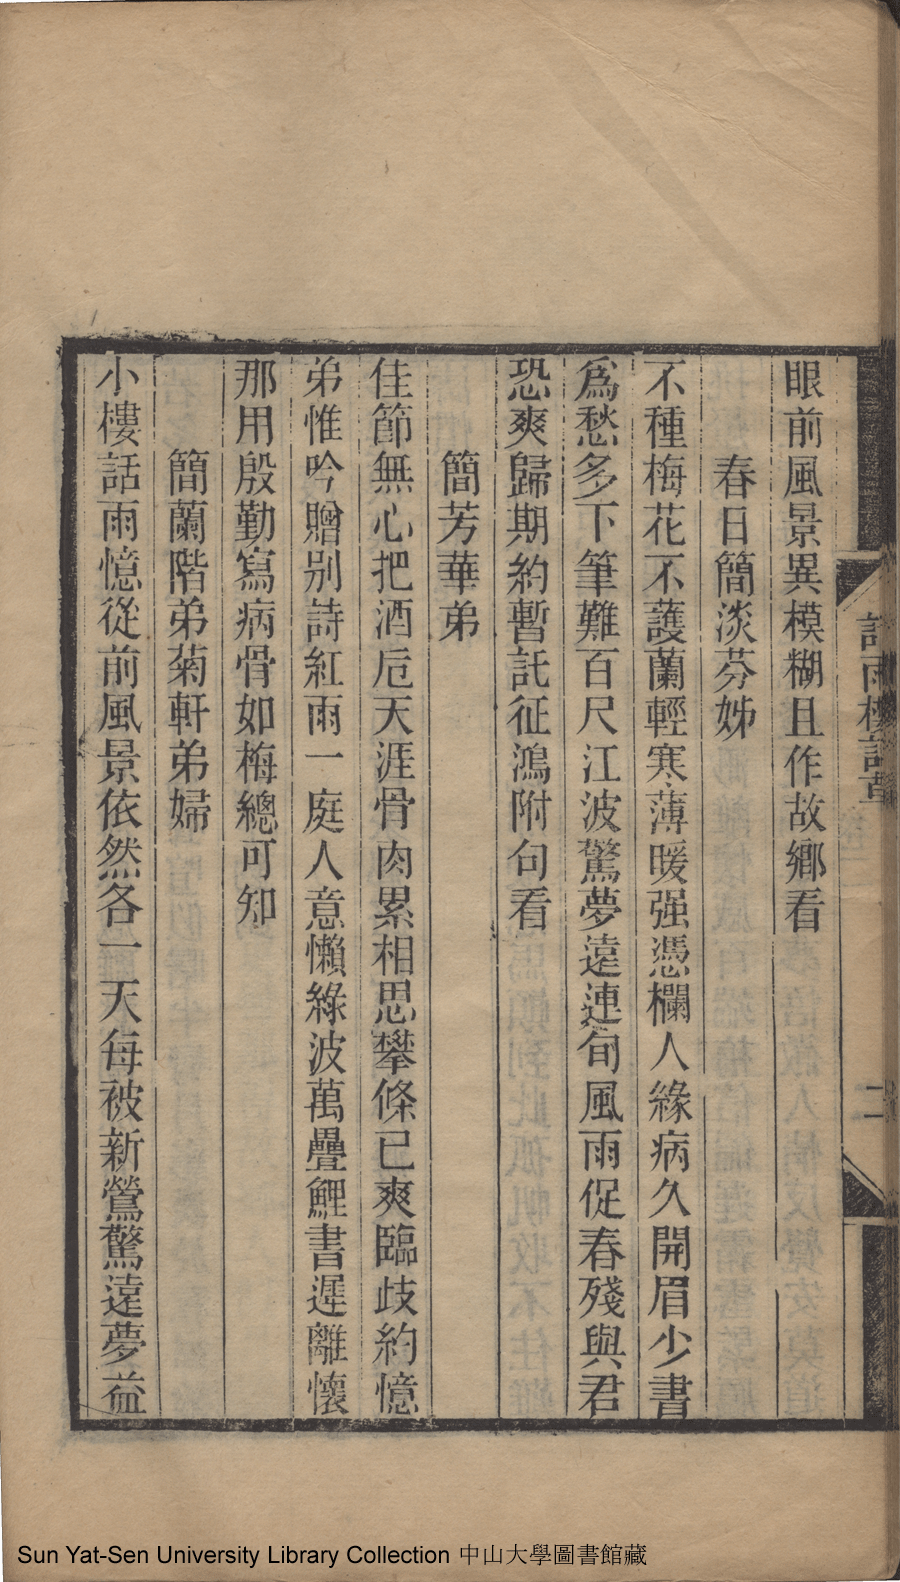 眼前風景異模糊且作故鄉看
春日簡淡芬姊
不種梅花不護蘭輕寒薄暖强憑欄人緣病久開眉少書
爲愁多下筆難百尺江波驚夢遠連旬風雨促春殘與君
恐爽歸期約暫託征鴻附句看
簡芳華弟
佳節無心把酒卮天涯骨肉累相思攀條已爽臨歧約憶
弟惟吟贈别詩紅雨一庭人意懶綠波萬疊鯉書遲離懷
那用殷勤寫病骨如梅總可知
簡蘭階弟菊軒弟婦
小樓話雨憶從前風景依然各一天每被新鶯驚遠夢益
雨樓
二
Sun Yat-Sen University Library Collection 中山大學圖書館藏